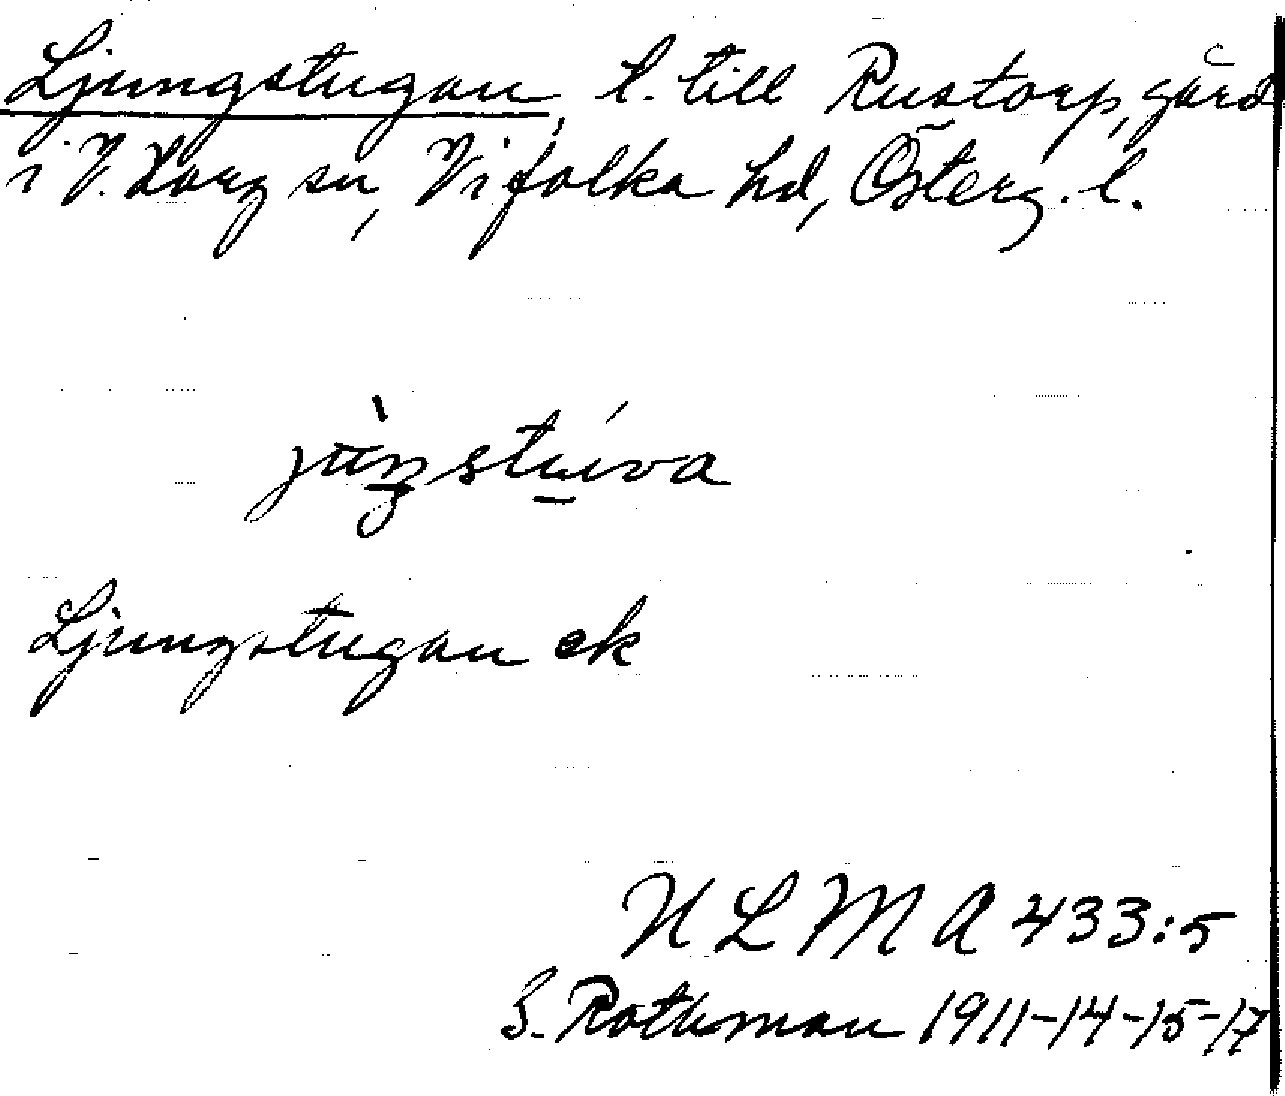 Ljungstugan, l. till Rustorp, gård
i V. Harg sn, Vifolka hd, Österg. l.
Ljungstugan ek
ULMA 433:5
S. Rothman 1911-14-15-17